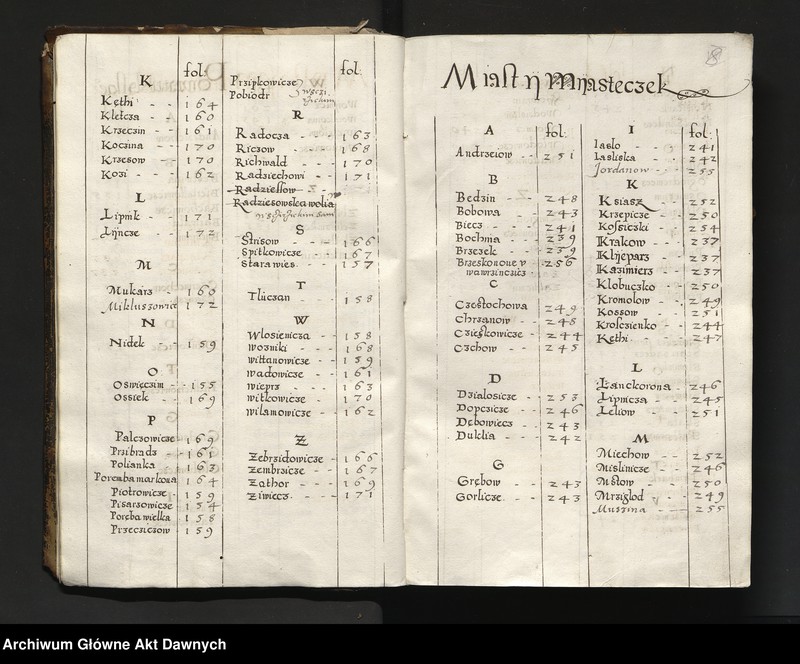 fol:
K
Kęthi - - 164
Kletcza - - 160
Krzeczin - - 161
Koczina - - 170
Krzesow - - 170
Kozi - - 162
L
Lipnik - - 171
Lyncze - - 172
M
Mukarz - - 160
Mikluszowice 172
N
Nidek - - 159
O
Oswięczim - - 155
Ossiek - - 169
P
Palczowicze 169
Przibradz - - 161
Polianka - 163
Poremba markowa 164
Piotrowicze - 159
Pisarzowicze - 154
Poręba wielka - 158
Przecziszow - 159
fol:
Przipkowicze
Pobiodr
R
Radocza - - - 163
Riczow - - - 168
Richwald - - - 170
Radziechowi - - 171
Radziessow
Radziesowska wolia
S
Strisow - - - 166
Spitkowicze - - 167
Starawies - - 157
T
Tluczan - - - 158
W
Wlosienicza - - 158
Wozniki - - - 168
Wittanowicze - - 159
Wadowicze - - 161
Wieprz - - - 163
Witkowicze - - 170
Wilamowicze - - 162
Z
Zebrzidowicze - - 166
Zembrzicze - - 167
Zathor - - - 169
Ziwiecz - - - 171
8
Miast y Miasteczek
fol:
A
Andrzeiow - - 251
B
Bedzin - - 248
Bobowa - - 243
Biecz - - - 241
Bochnia - - 239
Brzezek - - 239
Brzeskonoue y - 256
wawrzinczicz
C
Częstochowa 249
Chrzanow - - 248
Czieszkowicze - 244
Czchow - - 245
D
Dzialosicze - 253
Dopczicze - - 246
Dębowiecz - - 243
Duklia - - - 242
G
Grębow - - 243
Gorlicze - - 243
fol:
I
Iaslo - - 241
Iasliska - - 242
Jordanow - - 255
K
Ksiasz - - 252
Krzepicze - - 250
Kossieczki - 254
Krakow - - 237
Klyeparz - - 237
Kazimierz - - 237
Klobuczko - - 250
Kromolow - - 249
Kossow - - - 251
Krosczienko - - 244
Kęthi - - - 247
L
Lanckorona - 246
Lipnicza - - 245
Leliow - - 251
M
Miechow - - 252
Mislinicze - - 246
Mstow - - - 250
Mrziglod - - 249
Muszina - - - 255
Archiwum Główne Akt Dawnych